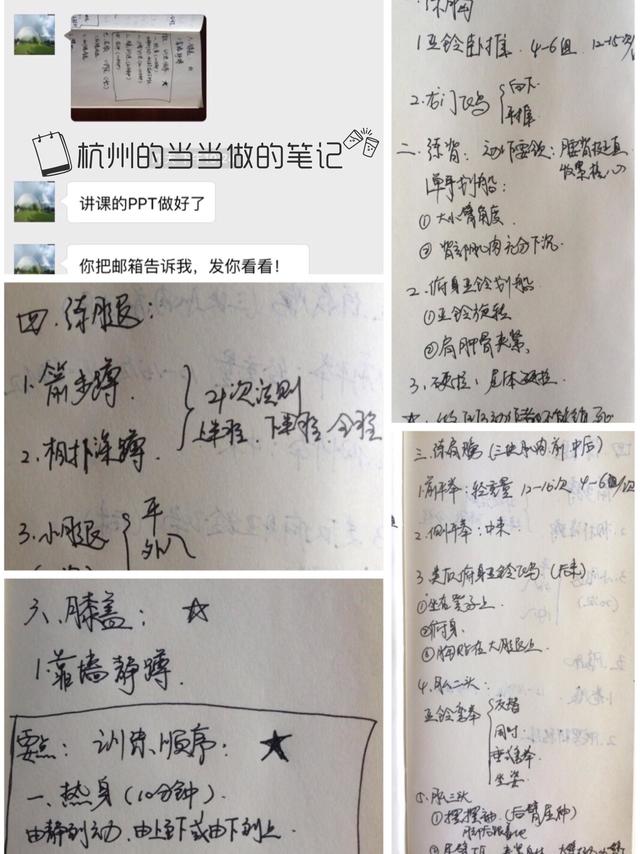 杭州的当当做的笔记
讲课的PPT做好了
你把邮箱告诉我，发你看看！
四、练腿：
1.箭步蹲
2.相扑深蹲
21次法则
上半程、下半程、全程
3.小腿
平
外八
六、膝盖：★
1.靠墙静蹲
要点：训练顺序：★
一、热身（10分钟）
由静到动、由上至下或由下到上
练胸
1.哑铃卧推 4-6组 12-15次/
2.龙门飞鸟
向下
平推
二、练背：动作要领：腰背挺直
收紧核心
单手划船：
①大小臂角度
②背部肌肉充分下沉
2.俯身哑铃划船
①哑铃旋转
②肩胛骨夹紧
3.硬拉：屈体硬拉
三、练肩膀（三块肌肉前中后）
1.前平举：轻重量 12-15次 4-6组
2.侧平举：中束
3.俯身哑铃飞鸟（后束）
①坐在凳子上
②俯身
③胸贴在大腿上
4.肱二头：
哑铃弯举
交替
同时
垂式弯举
坐姿
5.肱三头